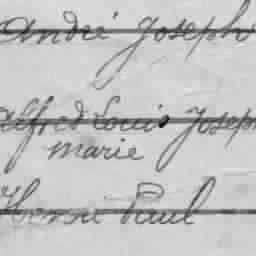 André Joseph
Alfred Louis Joseph
marie
Henri Paul